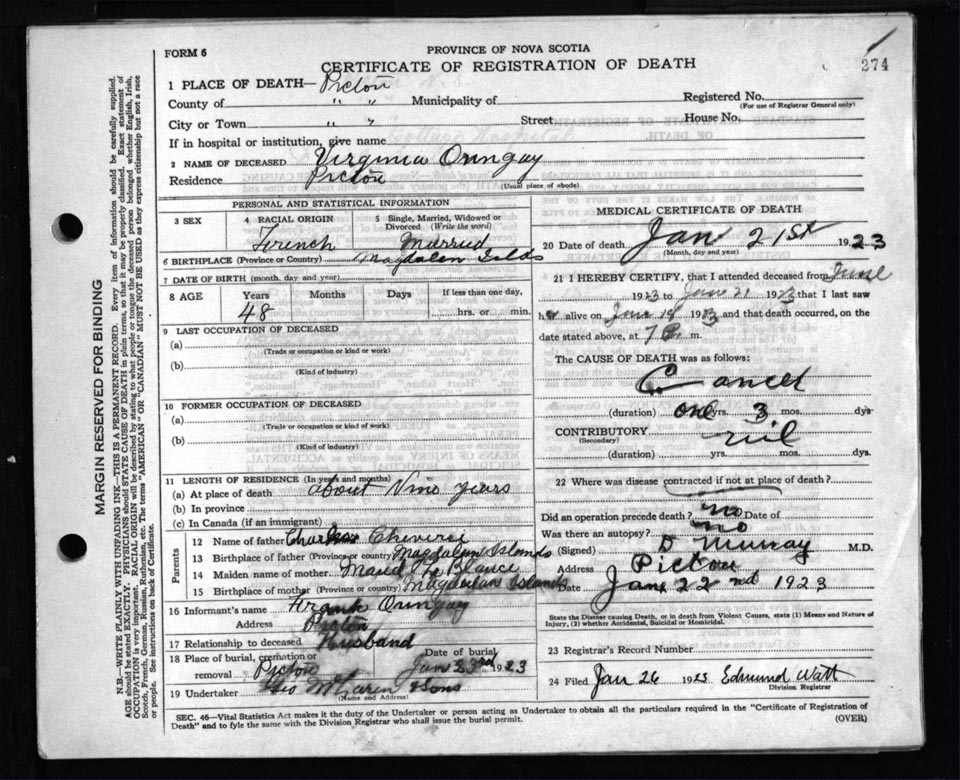 FORM 6
PROVINCE OF NOVA SCOTIA
CERTIFICATE OF REGISTRATION OF DEATH
274
1 PLACE OF DEATH— Pictou
County of " " Municipality of
Registered No.
(For use of Registrar General only)
City or Town " " Street House No.
If in hospital or institution, give name
2 NAME OF DECEASED Virginia Oringay
Residence Pictou
(Usual place of abode)
PERSONAL AND STATISTICAL INFORMATION
3 SEX
4 RACIAL ORIGIN French
5 Single, Married, Widowed or Divorced (Write the word) Married
6 BIRTHPLACE (Province or Country) Magdalen Islds
7 DATE OF BIRTH (month, day and year)
8 AGE Years Months Days If less than one day,
48 hrs. or min.
9 LAST OCCUPATION OF DECEASED
(a)
(Trade or occupation or kind or work)
(b)
(Kind of industry)
10 FORMER OCCUPATION OF DECEASED
(a)
(Trade or occupation or kind of work)
(b)
(Kind of industry)
11 LENGTH OF RESIDENCE (In years and months)
(a) At place of death about Nine years
(b) In province
(c) In Canada (if an immigrant)
Parents
12 Name of father Charles
13 Birthplace of father (Province or country) Magdalen Islands
14 Maiden name of mother Maud Le Blanc
15 Birthplace of mother (Province or country) Magdalen Islands
16 Informant's name Frank Oringay
Address Pictou
17 Relationship to deceased Husband
18 Place of burial, cremation or removal Pictou
Date of burial Jan 23rd 1923
19 Undertaker Geo & Sons
(Name and Address)
MEDICAL CERTIFICATE OF DEATH
20 Date of death Jan 21st 1923
(Month, day and year)
21 I HEREBY CERTIFY, that I attended deceased from June
1923 to Jan 21 1923 that I last saw
her alive on Jan 19 1923 and that death occurred, on the
date stated above, at 7 P. m.
The CAUSE OF DEATH was as follows:
Cancer
(duration) one yrs. 3 mos. dys
CONTRIBUTORY nil
(Secondary)
(duration) yrs. mos. dys.
22 Where was disease contracted if not at place of death?
Did an operation precede death? no Date of
Was there an autopsy? no
(Signed) D Murray M.D.
Address Pictou
Date Jan 22nd 1923
State the Disease causing Death, or in death from Violent Causes, state (1) Means and Nature of Injury, (2) whether Accidental, Suicidal or Homicidal.
23 Registrar's Record Number
24 Filed Jan 26 1923 Edmund Watt
Division Registrar
SEC. 46—Vital Statistics Act makes it the duty of the Undertaker or person acting as Undertaker to obtain all the particulars required in the "Certificate of Registration of
Death" and to fyle the same with the Division Registrar who shall issue the burial permit.
(OVER)
MARGIN RESERVED FOR BINDING
N.B.—WRITE PLAINLY WITH UNFADING INK—THIS IS A PERMANENT RECORD. Every item of information should be carefully supplied.
AGE should be stated EXACTLY. PHYSICIANS should STATE CAUSE OF DEATH in plain terms, so that it may be properly classified. Exact statement of
OCCUPATION is very important. RACIAL ORIGIN will be described by stating to what people or tongue the deceased person belonged, whether English, Irish,
Scotch, French, German, Russian, Ruthenian, etc. The terms "AMERICAN" OR "CANADIAN" MUST NOT BE USED as they express citizenship but not a race
or people. See instructions on back of Certificate.